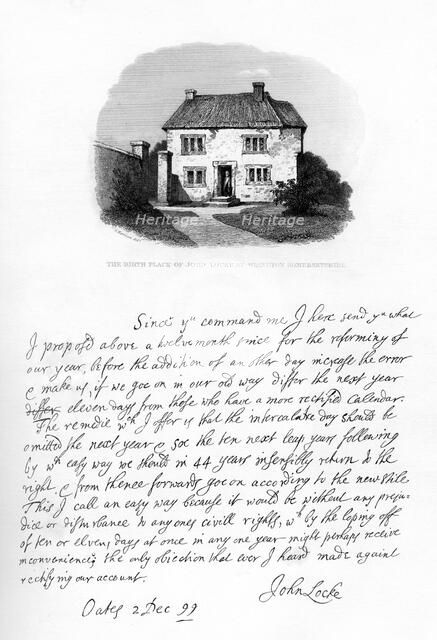 Heritage Heritage
Images Images
THE BIRTH PLACE OF JOHN LOCKE AT WRINGTON SOMERSETSHIRE.
Since yᵘ command me I here send yᵘ what
I propos'd above a twelvemonth since for the reforming of
our year, before the addition of an other day increase the error
& make us, if we goe on in our old way differ the next year
differ eleven days from those who have a more rectified Calendar.
The remedie wᶜʰ I offer is that the intercalare day should be
omitted the next year & soe the ten next leap years following
by wᶜʰ easy way we should in 44 years insensibly return to the
right & from thence forwards goe on according to the new stile
This I call an easy way because it would be without any preju-
dice or disturbance to any ones civill rights, wᶜʰ by the loping off
of ten or eleven days at once in any one year might perhaps receive
inconvenience, the only objection that ever I heard made against
rectifying our account.
John Locke
Oates 2 Dec 99